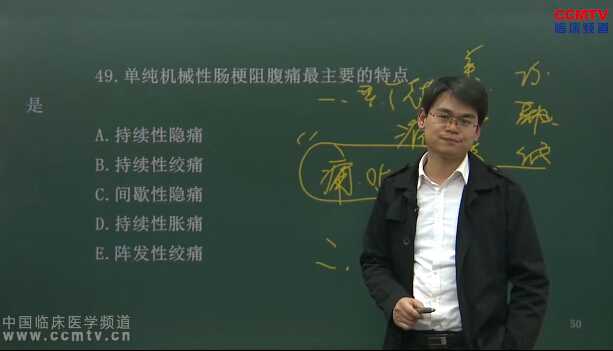 CCMTV
临床频道
49.单纯机械性肠梗阻腹痛最主要的特点
是
A.持续性隐痛
B.持续性绞痛
C.间歇性隐痛
D.持续性胀痛
E.阵发性绞痛
一、
痛
二、
中国临床医学频道
www.ccmtv.cn
50